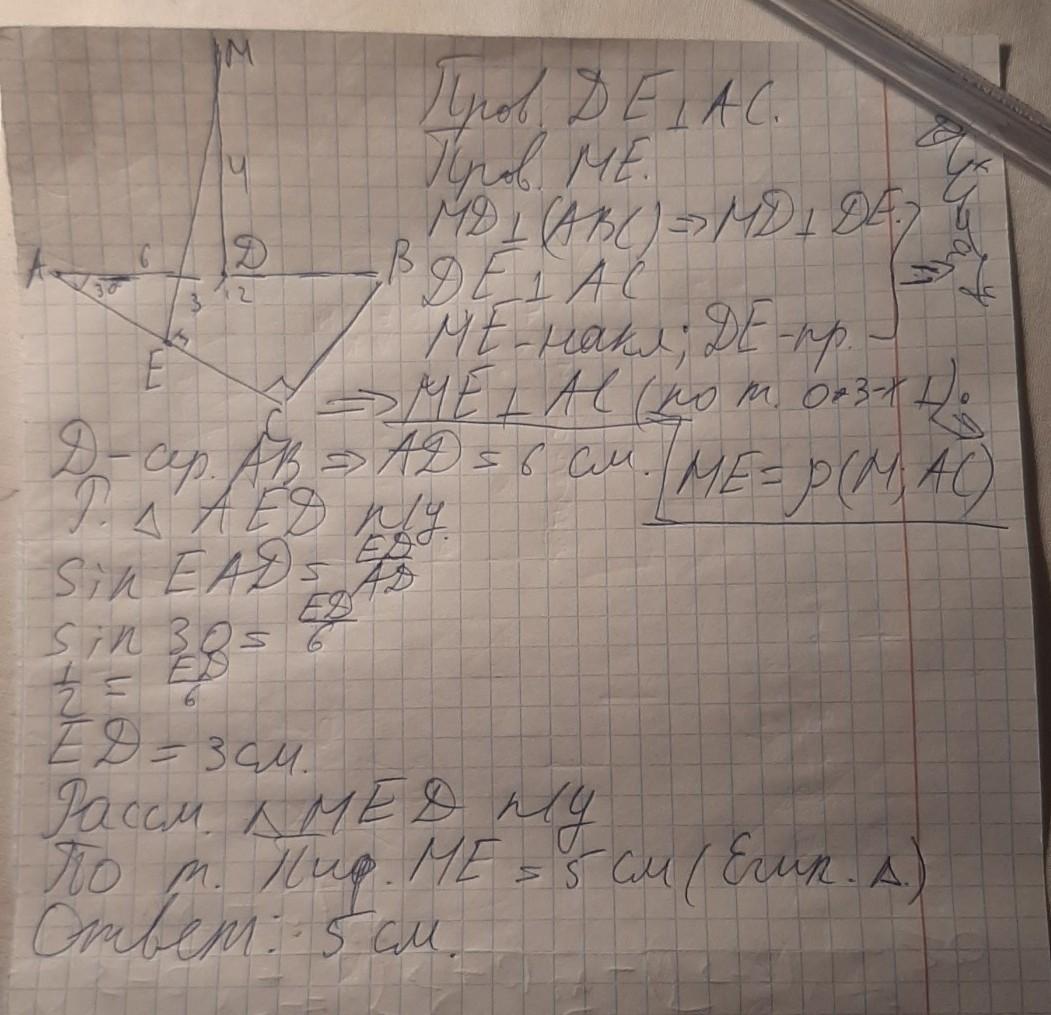 M
4
A 6 D B
30 3 12
E
C
Пров. DE⊥AC.
Пров. ME.
MD⊥(ABC)⇒MD⊥DE.
DE⊥AC
ME-накл; DE-пр.
⇒ME⊥AC (по т. о 3-х ⊥).
D-ср. AB⇒AD=6 см.
ME=ρ(M;AC)
Р. △ AED п/у.
sin EAD = ED/AD
sin 30 = ED/6
1/2 = ED/6
ED=3см.
Рассм. △MED п/у
По т. Пиф. ME=5 см (Егип. △.)
Ответ: 5 см.